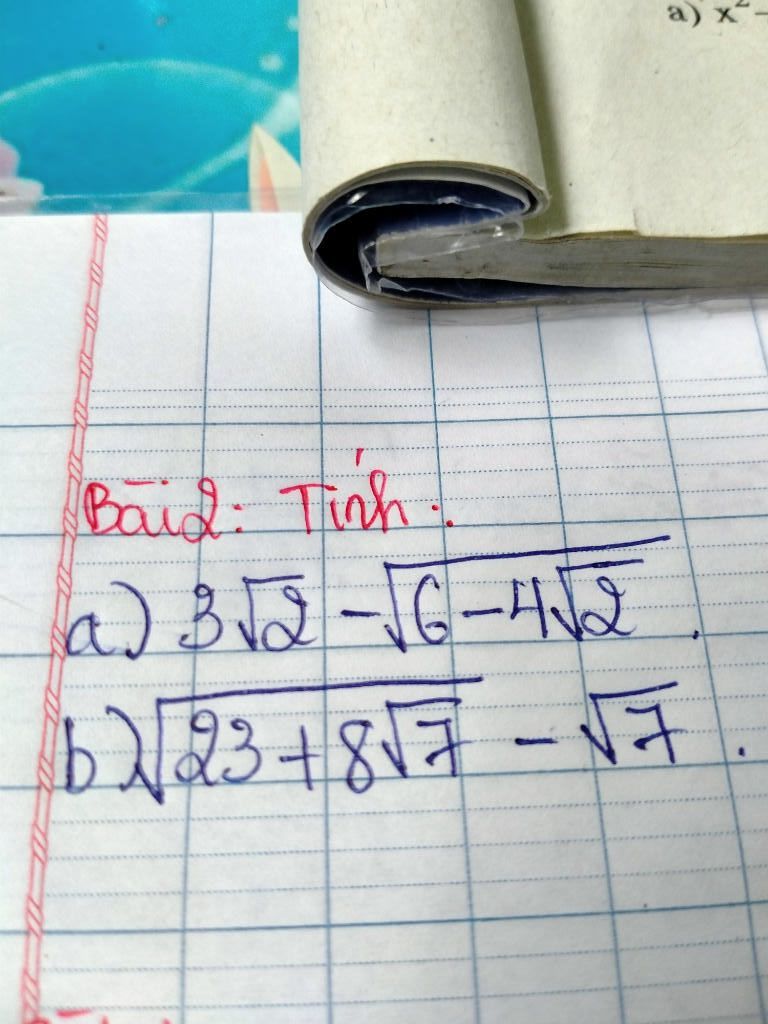 a) x² -
Bài 2: Tính:
a) 3√2 - √(6 - 4√2).
b) √(23 + 8√7) - √7.